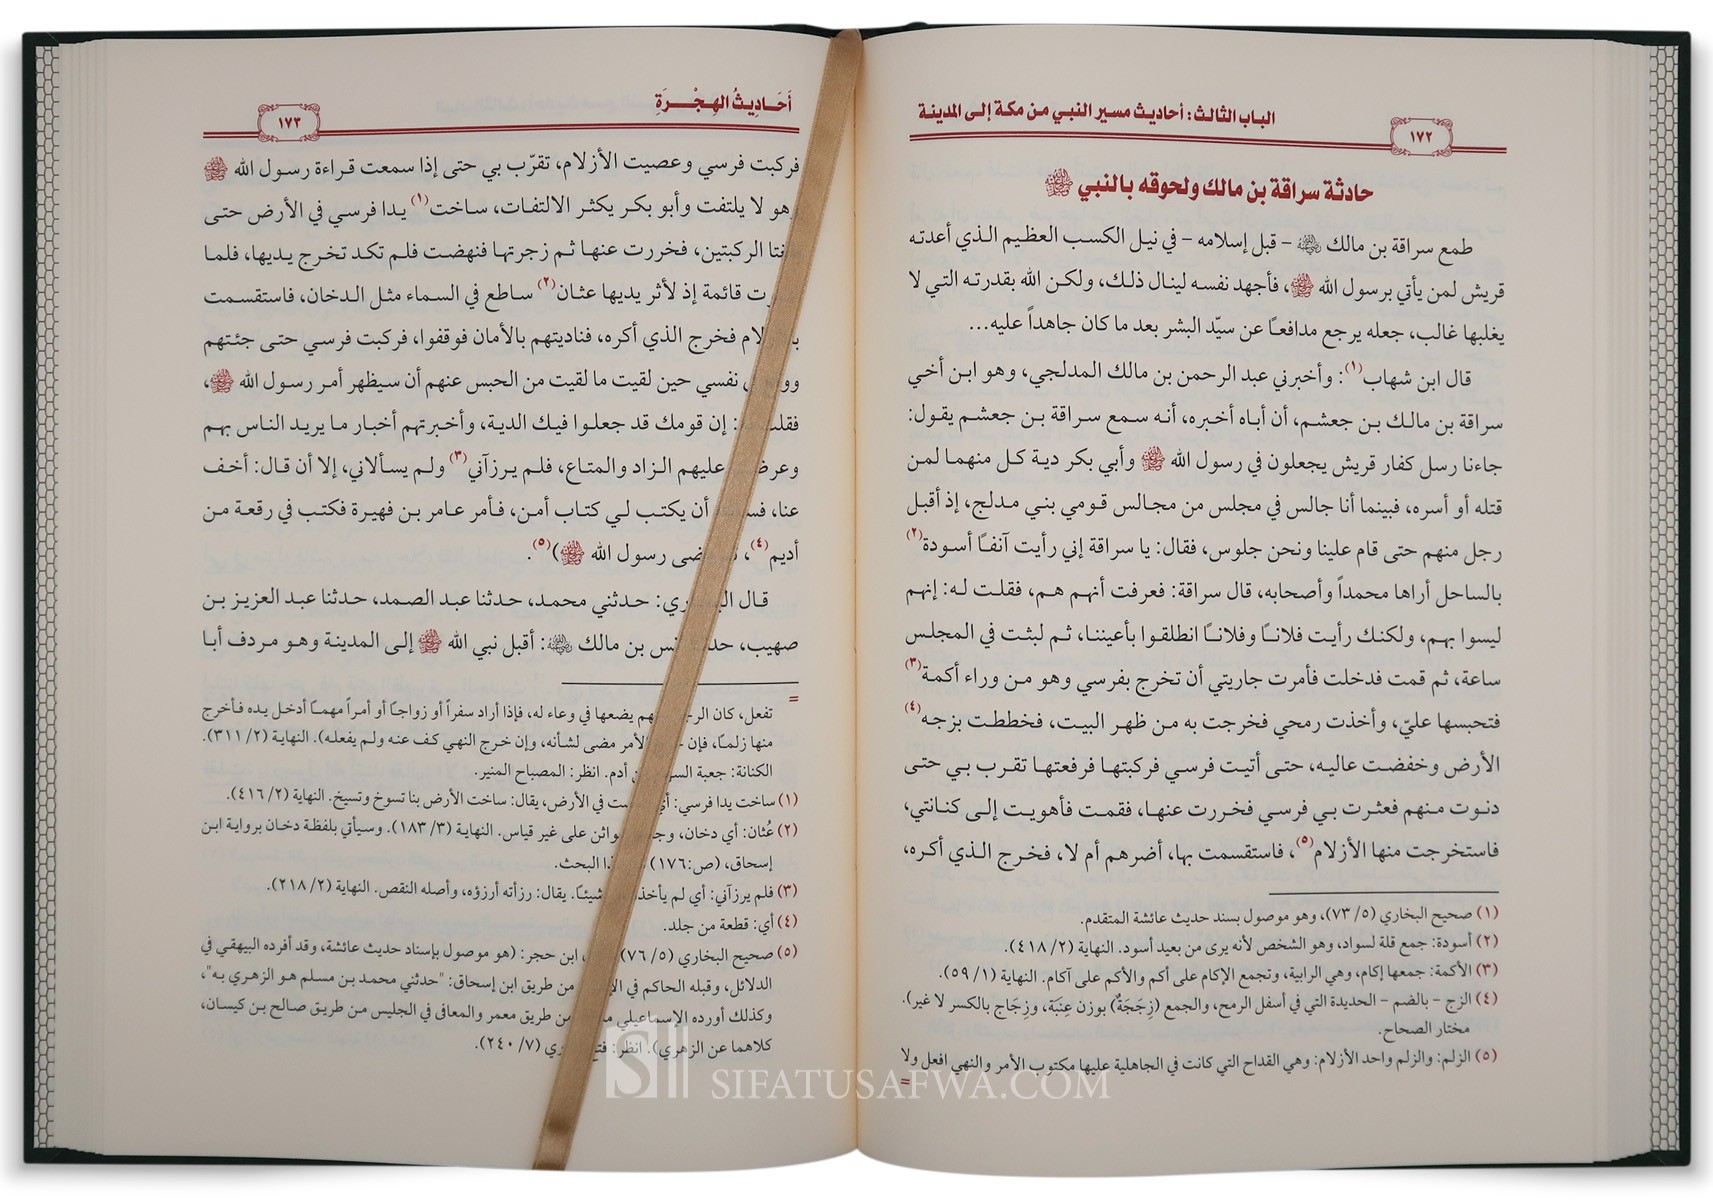 الباب الثالث: أحاديث مسير النبي من مكة إلى المدينة
١٧٢
حادثة سراقة بن مالك ولحوقه بالنبي ﷺ
طمع سراقة بن مالك رضي الله عنه – قبل إسلامه – في نيل الكسب العظيم الذي أعدته
قريش لمن يأتي برسول الله ﷺ، فأجهد نفسه لينال ذلك، ولكن الله بقدرته التي لا
يغلبها غالب، جعله يرجع مدافعاً عن سيّد البشر بعد ما كان جاهداً عليه...
قال ابن شهاب(١): وأخبرني عبد الرحمن بن مالك المدلجي، وهو ابن أخي
سراقة بن مالك بن جعشم، أن أباه أخبره، أنه سمع سراقة بن جعشم يقول:
جاءنا رسل كفار قريش يجعلون في رسول الله ﷺ وأبي بكر دية كل منهما لمن
قتله أو أسره، فبينما أنا جالس في مجلس من مجالس قومي بني مدلج، إذ أقبل
رجل منهم حتى قام علينا ونحن جلوس، فقال: يا سراقة إني رأيت آنفاً أسودة(٢)
بالساحل أراها محمداً وأصحابه، قال سراقة: فعرفت أنهم هم، فقلت له: إنهم
ليسوا بهم، ولكنك رأيت فلاناً وفلاناً انطلقوا بأعيننا، ثم لبثت في المجلس
ساعة، ثم قمت فدخلت فأمرت جاريتي أن تخرج بفرسي وهو من وراء أكمة(٣)
فتحبسها عليّ، وأخذت رمحي فخرجت به من ظهر البيت، فخططت بزجه(٤)
الأرض وخفضت عاليه، حتى أتيت فرسي فركبتها فرفعتها تقرب بي حتى
دنوت منهم فعثرت بي فرسي فخررت عنها، فقمت فأهويت إلى كنانتي،
فاستخرجت منها الأزلام(٥)، فاستقسمت بها، أضرهم أم لا، فخرج الذي أكره،
(١) صحيح البخاري (٥/ ٧٣)، وهو موصول بسند حديث عائشة المتقدم.
(٢) أسودة: جمع قلة لسواد، وهو الشخص لأنه يرى من بعيد أسود. النهاية (٢/ ٤١٨).
(٣) الأكمة: جمعها إكام، وهي الرابية، وتجمع الإكام على أكم والأكم على آكام. النهاية (١/ ٥٩).
(٤) الزج – بالضم – الحديدة التي في أسفل الرمح، والجمع (زِجَجَةٌ) بوزن عِنَبَة، وزِجَاج بالكسر لا غير).
مختار الصحاح.
(٥) الزلم: والزلم واحد الأزلام: وهي القداح التي كانت في الجاهلية عليها مكتوب الأمر والنهي افعل ولا
=
أَحَادِيثُ الهِجْرَةِ
١٧٣
فركبت فرسي وعصيت الأزلام، تقرّب بي حتى إذا سمعت قراءة رسول الله ﷺ
وهو لا يلتفت وأبو بكر يكثر الالتفات، ساخت(١) يدا فرسي في الأرض حتى
الركبتين، فخررت عنها ثم زجرتها فنهضت فلم تكد تخرج يديها، فلما
قائمة إذ لأثر يديها عثان(٢) ساطع في السماء مثل الدخان، فاستقسمت
فخرج الذي أكره، فناديتهم بالأمان فوقفوا، فركبت فرسي حتى جئتهم
نفسي حين لقيت ما لقيت من الحبس عنهم أن سيظهر أمر رسول الله ﷺ،
إن قومك قد جعلوا فيك الدية، وأخبرتهم أخبار ما يريد الناس بهم
عليهم الزاد والمتاع، فلم يرزآني(٣) ولم يسألاني، إلا أن قال: أخف
عنا، أن يكتب لي كتاب أمن، فأمر عامر بن فهيرة فكتب في رقعة من
أديم(٤)، رسول الله ﷺ)(٥).
قال حدثني محمد، حدثنا عبد الصمد، حدثنا عبد العزيز بن
صهيب، بن مالك رضي الله عنه: أقبل نبي الله ﷺ إلى المدينة وهو مردف أبا
=
تفعل، كان يضعها في وعاء له، فإذا أراد سفراً أو زواجاً أو أمراً مهماً أدخل يده فأخرج
منها زلماً، فإن الأمر مضى لشأنه، وإن خرج النهي كف عنه ولم يفعله). النهاية (٢/ ٣١١).
الكنانة: جعبة أدم. انظر: المصباح المنير.
(١) ساخت يدا فرسي: أي في الأرض، يقال: ساخت الأرض بنا تسوخ وتسيخ. النهاية (٢/ ٤١٦).
(٢) عُثان: أي دخان، على غير قياس. النهاية (٣/ ١٨٣). وسيأتي بلفظة دخان برواية ابن
إسحاق، (ص:١٧٦) البحث.
(٣) فلم يرزآني: أي لم شيئاً. يقال: رزأته أرزؤه، وأصله النقص. النهاية (٢/ ٢١٨).
(٤) أي: قطعة من جلد.
(٥) صحيح البخاري (٥/ ٧٦) ابن حجر: (هو موصول بإسناد حديث عائشة، وقد أفرده البيهقي في
الدلائل، وقبله الحاكم في من طريق ابن إسحاق: "حدثني محمد بن مسلم هو الزهري به"،
وكذلك أورده الإسماعيلي من طريق معمر والمعافى في الجليس من طريق صالح بن كيسان،
كلاهما عن الزهري). انظر: (٧/ ٢٤٠).
SIFATUSAFWA.COM